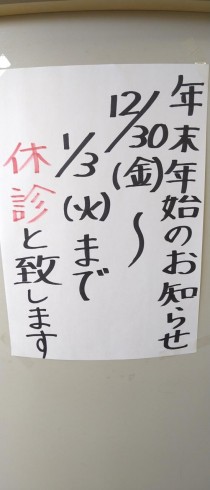 年末年始のお知らせ
12/30(金)〜
1/3(火)まで
休診と致します